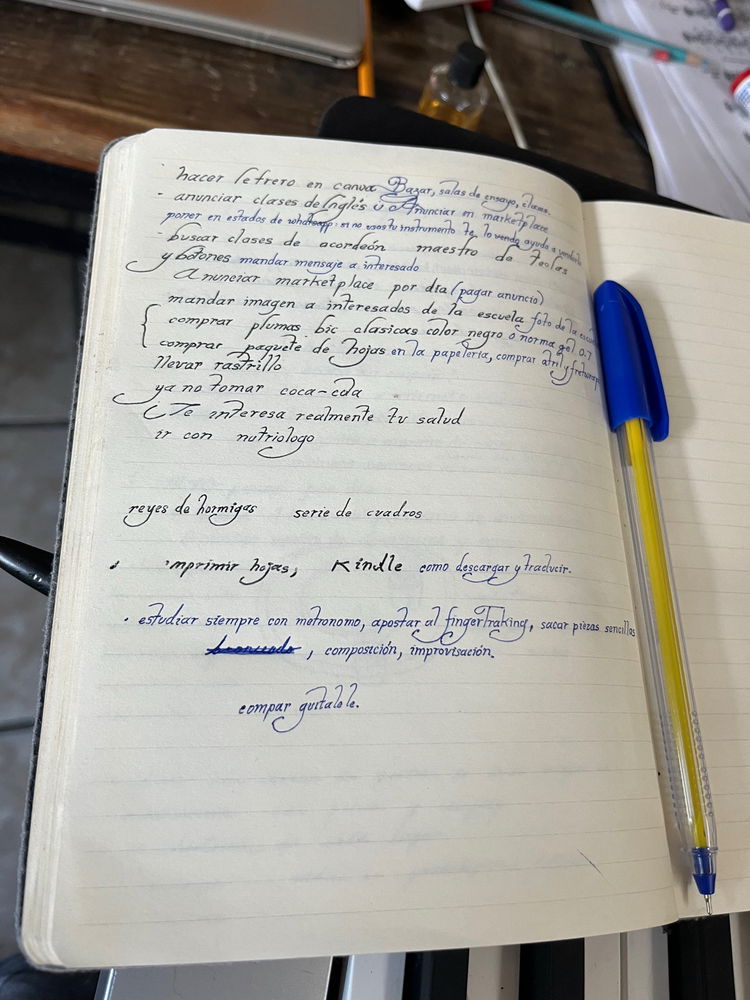 · hacer letrero en canva Bazar, salas de ensayo, clases.
· anunciar clases de Inglés ü Anunciar en marketplace
poner en estados de whatsapp: si no usas tu instrumento te lo vendo, ayuda a venderlo
· buscar clases de acordeón maestro de teclas
y botones mandar mensaje a interesado
Anunciar marketplace por dia (pagar anuncio)
mandar imagen a interesados de la escuela foto de la
comprar plumas bic clasicas color negro o norma gel 0.7
comprar paquete de hojas en la papeleria, comprar atril y
llevar rastrillo
ya no tomar coca-cola
¿Te interesa realmente tu salud
ir con nutriologo
reyes de hormigas serie de cuadros
· imprimir hojas, Kindle como descargar y traducir.
· estudiar siempre con metronomo, apostar al fingerTraking, sacar piezas sencillas
, composición, improvisación.
compar guitalele.